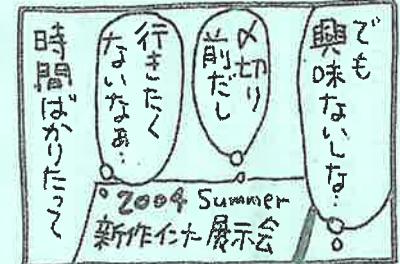 でも
興味ないしな…
〆切り
前だし
行きたく
ないなぁ…
時間ばかりたって
2004 Summer
新作仁た展示会